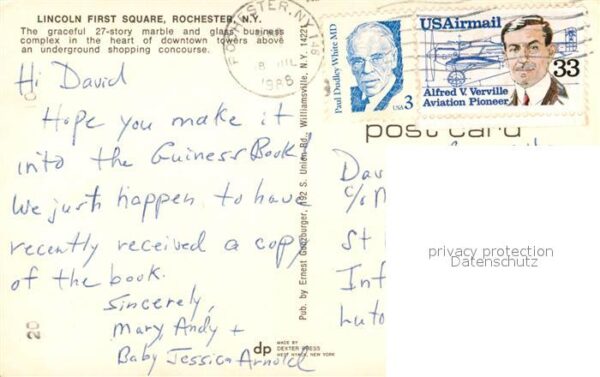 LINCOLN FIRST SQUARE, ROCHESTER, N.Y.
The graceful 27-story marble and glass business
complex in the heart of downtown towers above
an underground shopping concourse.
Hi David
Hope you make it
into the Guiness Book!
We just happen to have
recently received a copy
of the book.
Sincerely,
Mary, Andy +
Baby Jessica Arnold
20
Pub. by Ernest Gunzburger, S. Union Rd., Williamsville, N.Y. 1422
dp
MADE BY
DEXTER PRESS
WEST NYACK, NEW YORK
ROCHESTER, NY 146
1986
Paul Dudley White MD
USA 3
USAirmail
33
Alfred V. Verville
Aviation Pioneer
post card
Dav
c/o
St
Inf
Luto
privacy protection
Datenschutz